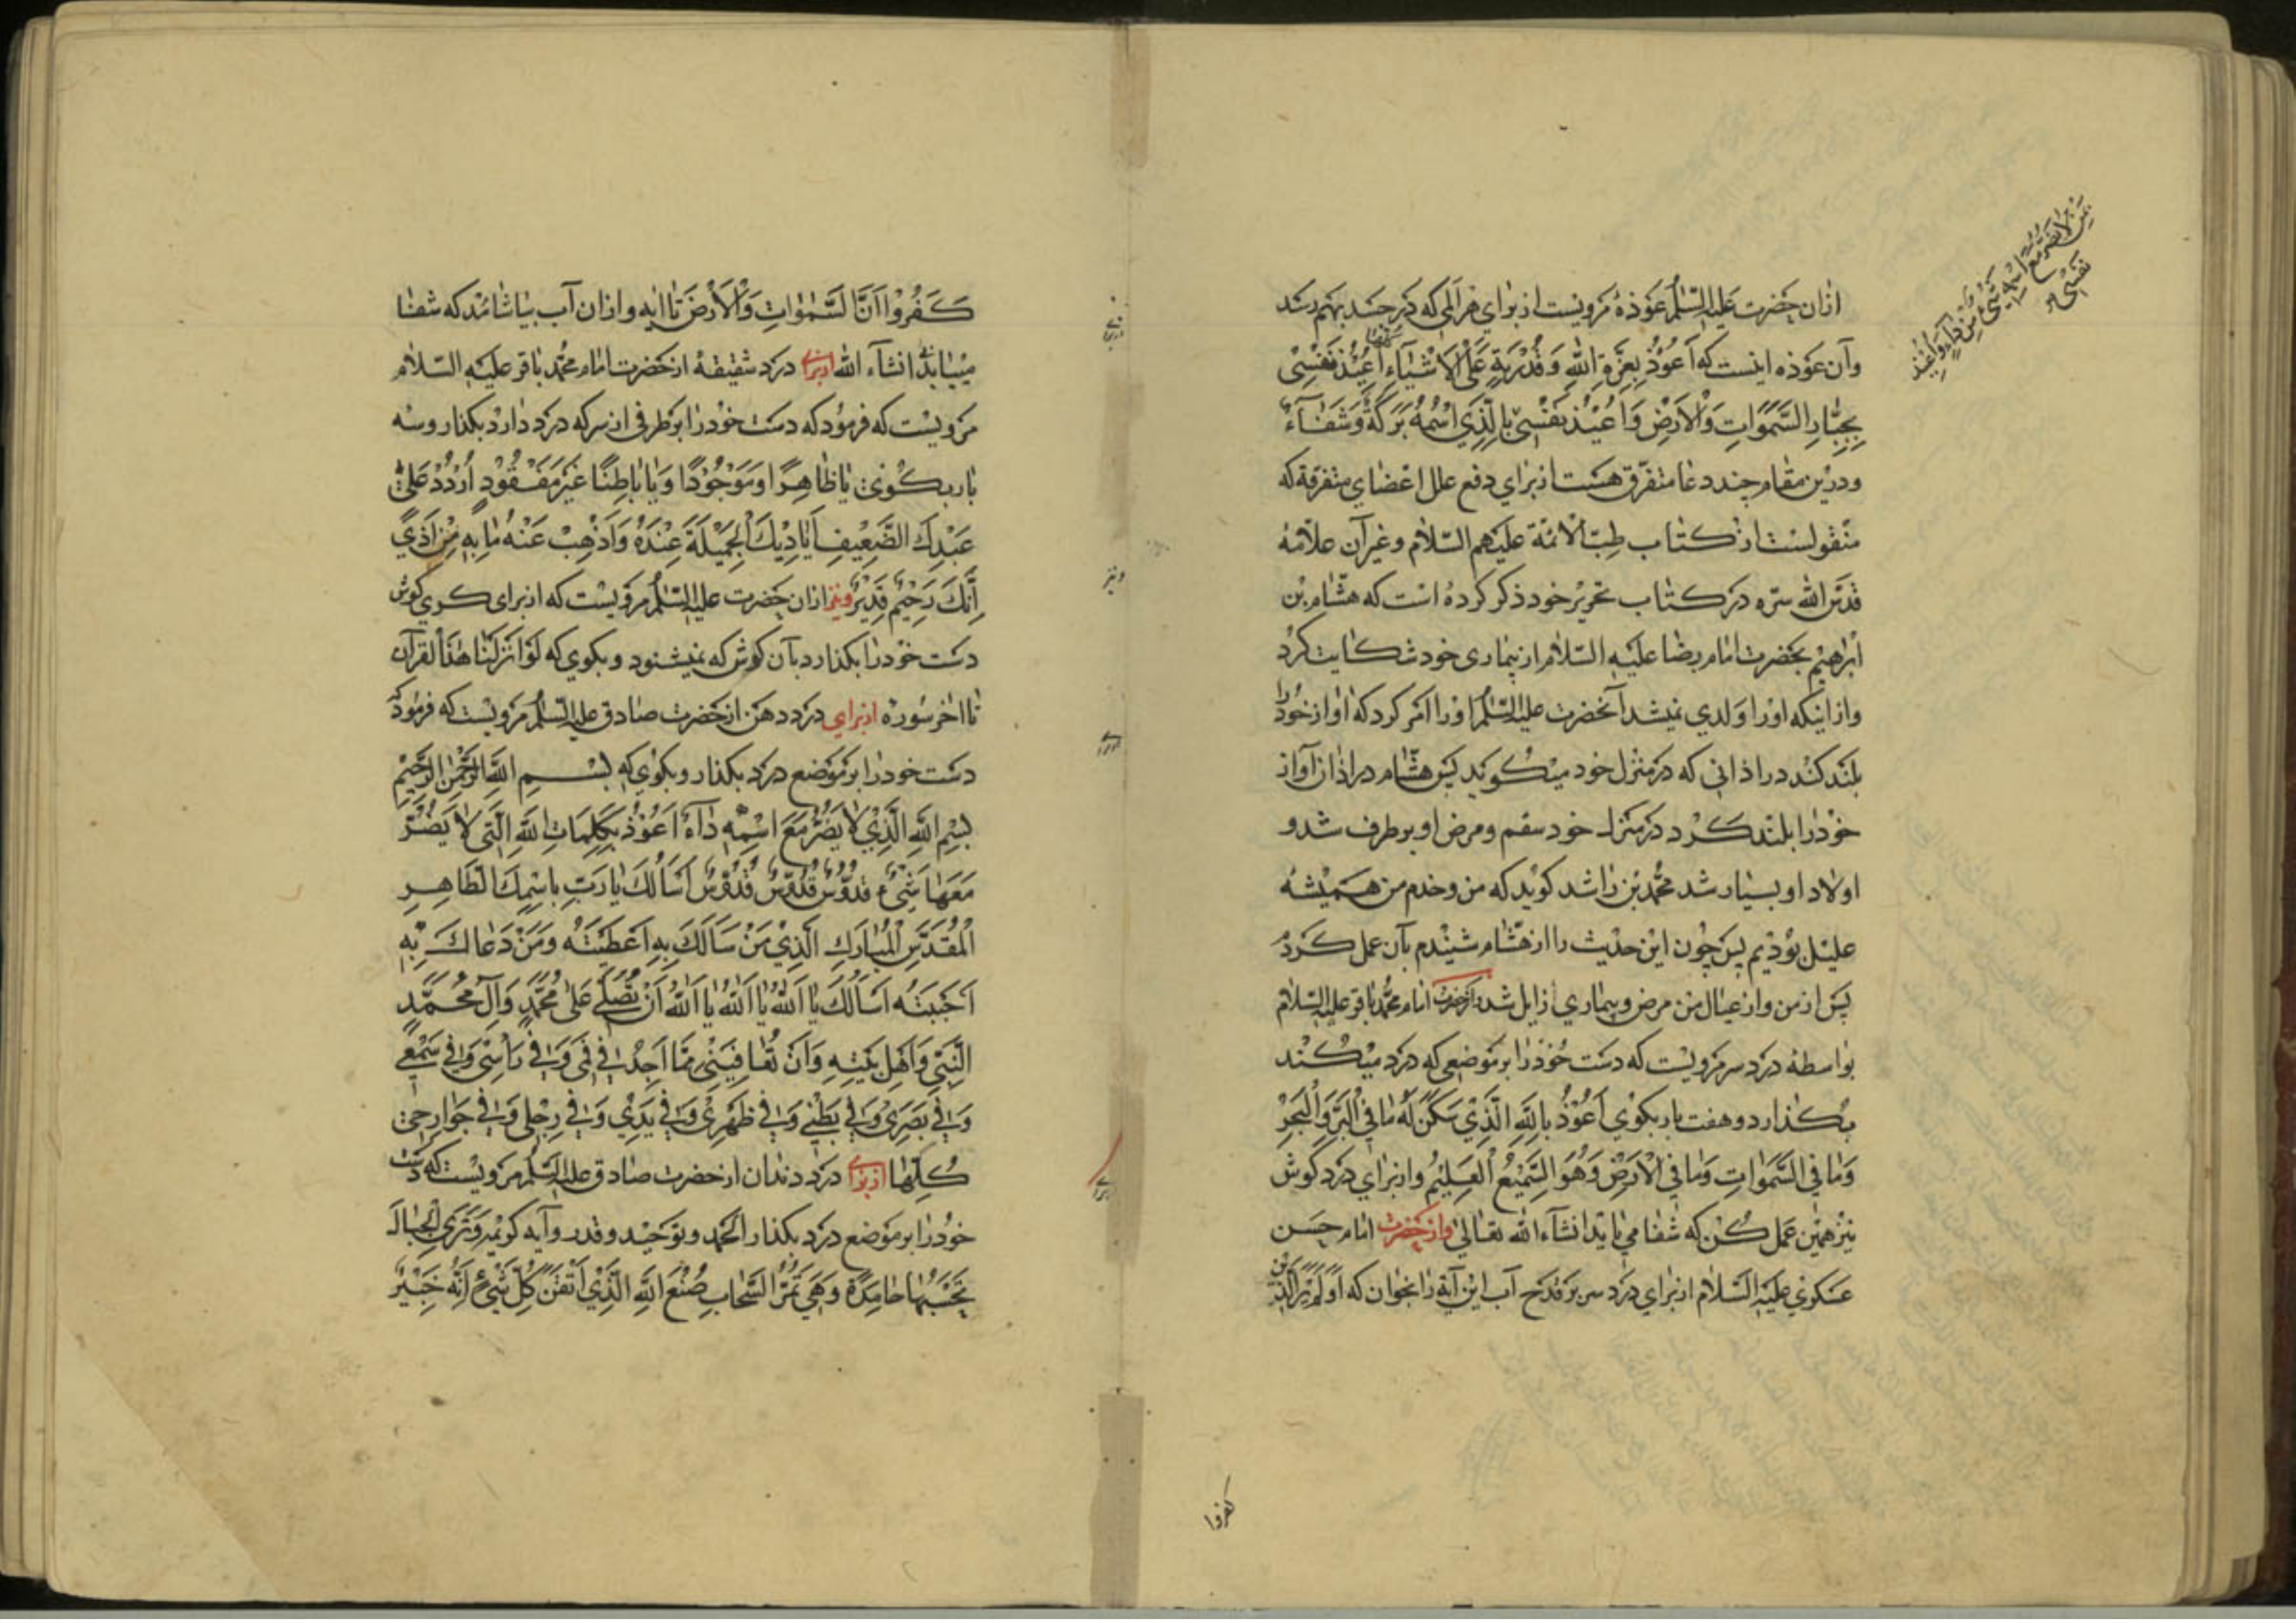 ازان حضرت علیه السّلم عوذهٔ مرویست از برای هر المی که در جسد بهم رسد
وآن عوذه اینست که اَعُوْذُ بِعِزَّةِ اللّٰهِ وَ قُدْرَتِهِ عَلَى الْاَشْيَآءِ اُعِيْذُ نَفْسِىْ
بِجَبَّارِ السَّمٰوَاتِ وَالْاَرْضِ وَاُعِيْذُ نَفْسِىْ بِالَّذِي اسْمُهُ بَرَكَةٌ وَشَفَآءٌ
من لا يضرّ مع اسمه شىء من داء واعيذ
نفسى
ودرین مقام چند دعا متفرّق هست از برای دفع علل اعضای متفرقه که
منقولست از کتاب طبّ الائمّة علیهم السّلام وغیر آن علاّمهٔ
قدّس اللّٰه سرّه در کتاب تحریر خود ذکر کرده است که هشام بن
ابرهیم بحضرت امام رضا علیه السّلام از بیماری خود شکایت کرد
واز اینکه اورا ولدی نمیشد آنحضرت علیه السّلم اورا امر کرد که اواز خود را
بلند کند در اذانی که در منزل خود میکوید پس هشام در اذان آواز
خودرا بلند کرد در منزل خود سقم ومرض او بر طرف شد و
اولاد او بسیار شد محمّد بن راشد کوید که من وخدم من همیشه
علیل بودیم پس چون این حدیث را از هشام شنیدم بآن عمل کردم
پس از من واز عیال من مرض وبیماری زایل شد واز حضرت امام محمّد باقر علیه السّلام
بواسطه درد سر مرویست که دست خودرا بر موضعی که درد میکند
بکذارد و هفت بار بکوی اَعُوْذُ بِاللّٰهِ الَّذِيْ سَكَنَ لَهُ مَا فِي الْبَرِّ وَالْبَحْرِ
وَمَا فِي السَّمٰوَاتِ وَمَا فِي الْاَرْضِ وَهُوَ السَّمِيْعُ الْعَلِيْمُ واز برای درد کوش
نیز همین عمل کن که شفا می یابد انشآء اللّٰه تعالی واز حضرت امام حسن
عسکری علیه السّلام از برای درد سر بر قدح آب این آیة را بخوان که اَوَلَمْ يَرَ الَّذِيْنَ
کفروا
كَفَرُوْا اَنَّ السَّمٰوَاتِ وَالْاَرْضَ تا ایه وازان آب بیاشامند که شفا
مییابد انشآء اللّٰه از برای درد شقیقهٔ از حضرت امام محمّد باقر علیه السّلام
مرویست که فرمود که دست خودرا بر طرفی از سر که درد دارد بکذار وسه
بار بکوی یَا ظَاهِرًا وَمَوْجُوْدًا وَيَا بَاطِنًا غَيْرَ مَفْقُوْدٍ اُرْدُدْ عَلٰى
عَبْدِكَ الضَّعِيْفِ اَيَادِيْكَ الْجَمِيْلَةَ عِنْدَهُ وَاَذْهِبْ عَنْهُ مَا بِهِ مِنْ اَذًى
اِنَّكَ رَحِيْمٌ قَدِيْرٌ ونیز ازان حضرت علیه السّلم مرویست که از برای کری کوش
دست خودرا بکذارد بآن کوش که نمیشنود وبکوی که لَوْ اَنْزَلْنَا هٰذَا الْقُرْآنَ
تا اخر سوره از برای درد دهن از حضرت صادق علیه السّلم مرویست که فرمود که
دست خودرا بر موضع درد بکذار وبکوی که بِسْمِ اللّٰهِ الرَّحْمٰنِ الرَّحِيْمِ
بِسْمِ اللّٰهِ الَّذِيْ لَا يَضُرُّ مَعَ اسْمِهِ دَآءٌ اَعُوْذُ بِكَلِمَاتِ اللّٰهِ الَّتِى لَا يَضُرُّ
مَعَهَا شَىْءٌ قُدُّوْسٌ قُدُّوْسٌ قُدُّوْسٌ اَسْاَلُكَ يَا رَبِّ بِاسْمِكَ الطَّاهِرِ
الْمُقَدَّسِ الْمُبَارَكِ الَّذِيْ مَنْ سَاَلَكَ بِهِ اَعْطَيْتَهُ وَمَنْ دَعَاكَ بِهِ
اَجَبْتَهُ اَسْاَلُكَ يَا اَللّٰهُ يَا اَللّٰهُ يَا اَللّٰهُ اَنْ تُصَلِّىَ عَلٰى مُحَمَّدٍ وَآلِ مُحَمَّدٍ
النَّبِىِّ وَاَهْلِ بَيْتِهِ وَاَنْ تُعَافِيَنِىْ مِمَّا اَجِدُ فِى فَمِى وَفِى رَاْسِى وَفِى سَمْعِى
وَفِى بَصَرِىْ وَفِى بَطْنِى وَفِى ظَهْرِىْ وَفِى يَدِيْ وَفِى رِجْلِى وَفِى جَوَارِحِىْ
كُلِّهَا از برای درد دندان از حضرت صادق علیه السّلم مرویست که دست
خودرا بر موضع درد بکذار الحمد وتوحید وقدر وآیه کریمه وَتَرَى الْجِبَالَ
تَحْسَبُهَا جَامِدَةً وَهِيَ تَمُرُّ مَرَّ السَّحَابِ صُنْعَ اللّٰهِ الَّذِيْ اَتْقَنَ كُلَّ شَىْءٍ اِنَّهُ خَبِيْرٌ